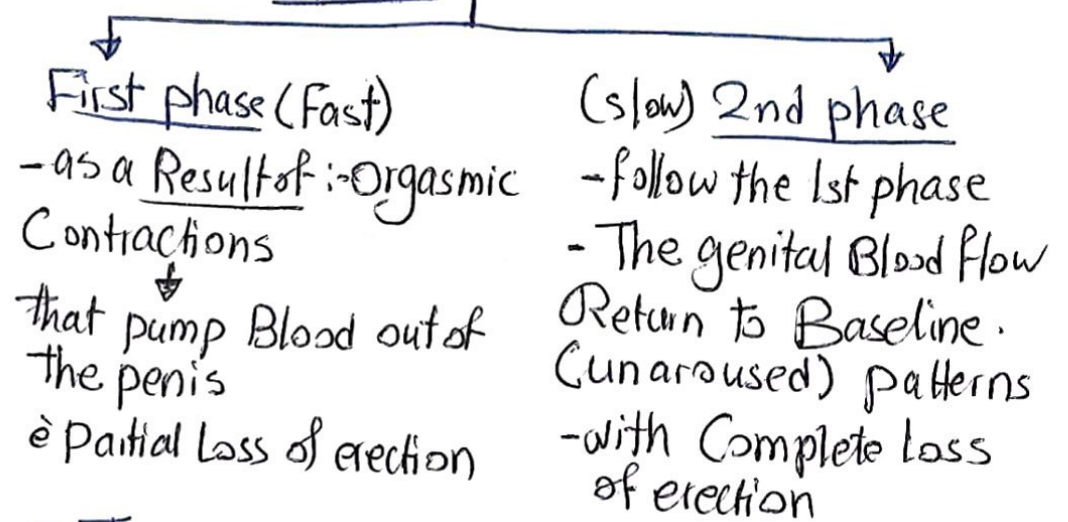 First phase (Fast)
- as a Result of :- Orgasmic
Contractions
that pump Blood out of
the penis
è Partial Loss of erection
(slow) 2nd phase
- follow the 1st phase
- The genital Blood flow
Return to Baseline.
(unaroused) patterns
- with Complete loss
of erection